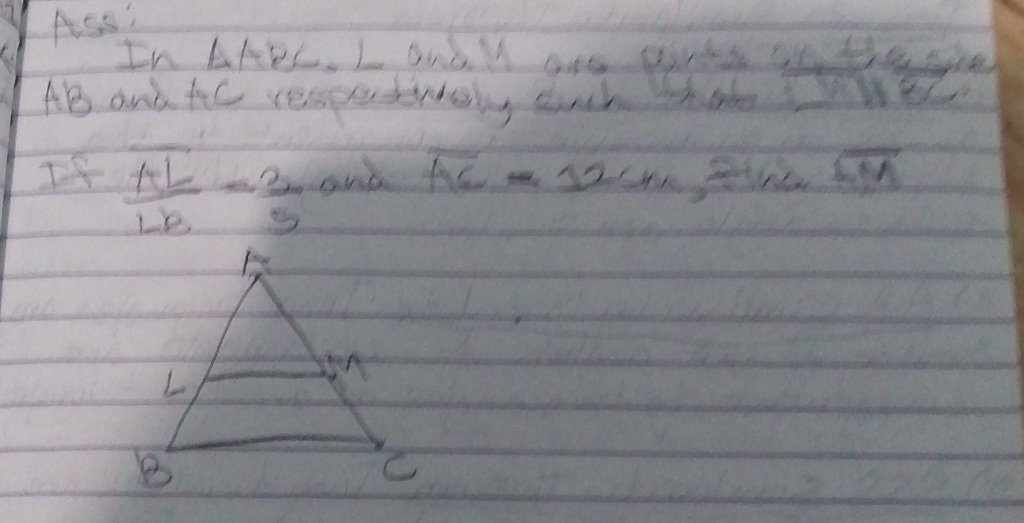 Ass:
In ΔABC, L and M are points on the
AB and AC respectively such that LM || BC.
If AL/LB = 2/5 and AC = 12cm, find
A
L M
B C